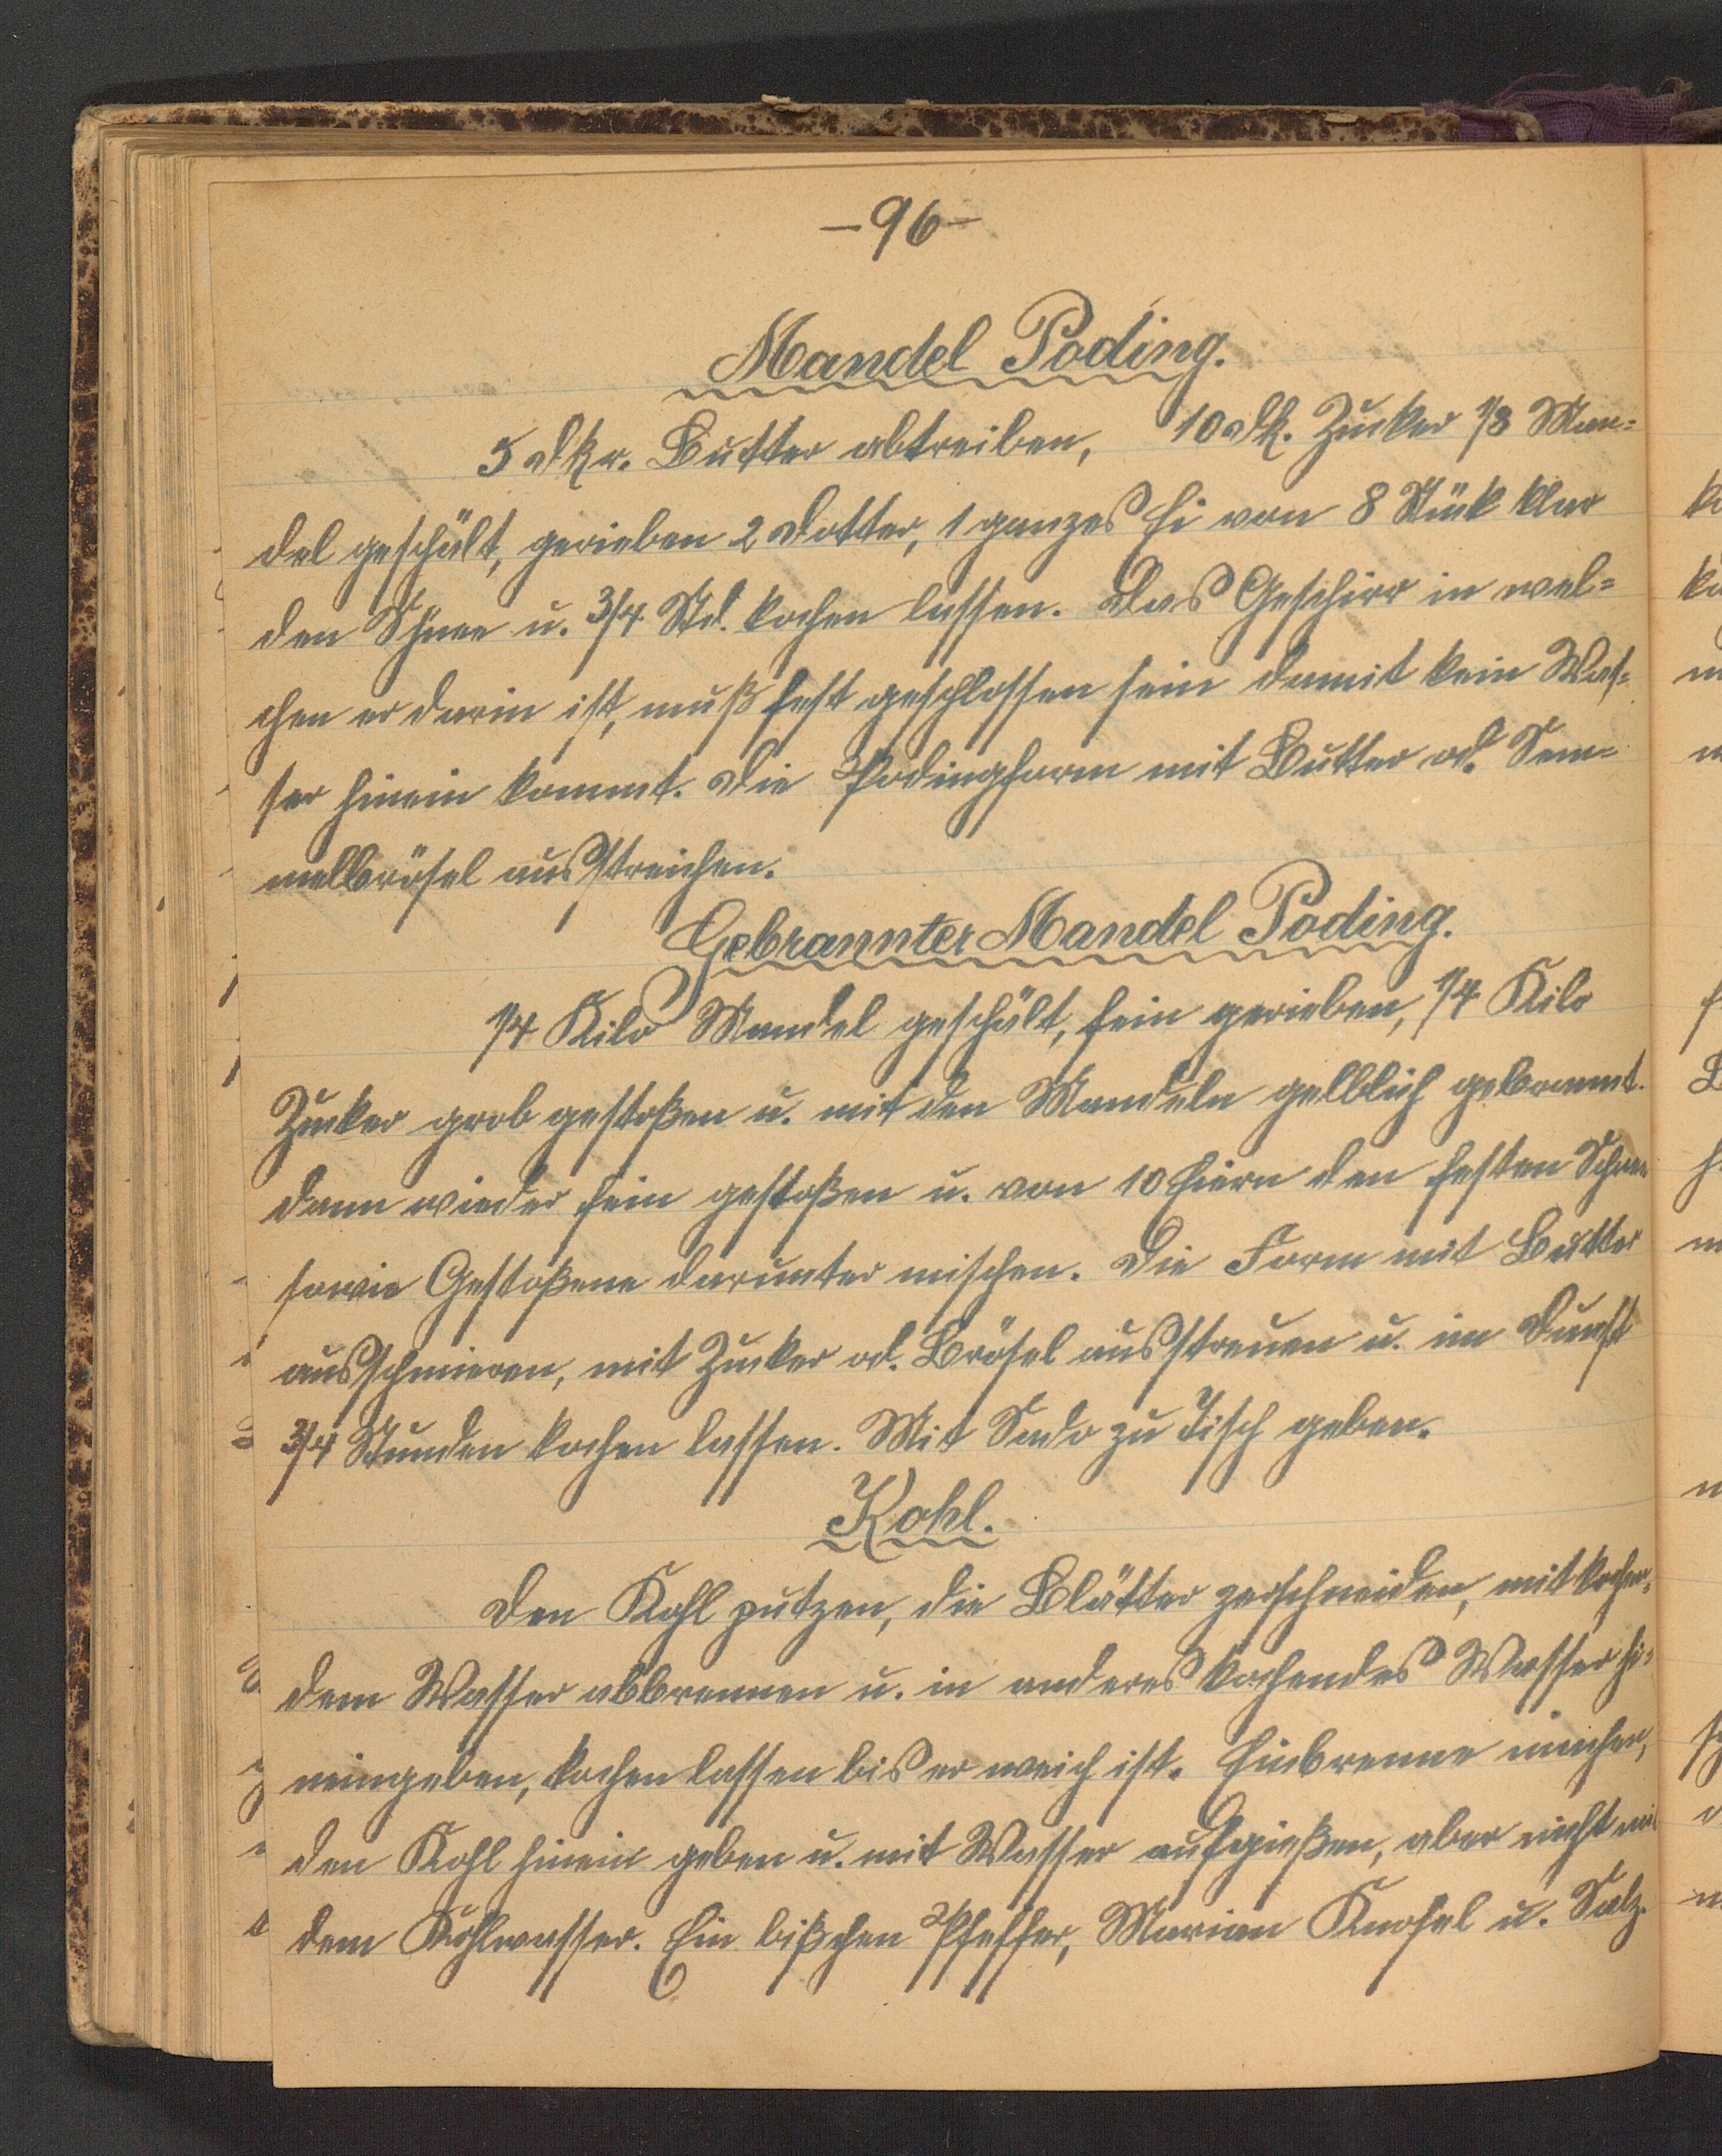 —96—
Mandel Poding.
5 Dkr. Butter abtreiben, 10 Dk. Zucker 1/8 Man=
del geschält, gerieben 2 Dotter, 1 ganzes Ei von 8 Stük klar
den Schnee u. 3/4 Std. kochen lassen. Das Geschirr in wel=
chen er darin ist, muß fest geschlossen sein damit kein Was=
ser hinein kommt. Die Podingform mit Butter od. Sem=
melbrösel ausstreichen.
Gebrannter Mandel Poding.
1/4 Kilo Mandel geschält, fein gerieben, 1/4 Kilo
Zucker grob gestoßen u. mit den Mandeln gelblich gebrannt.
dann wieder fein gestoßen u. von 10 Eiern den festen Schnee
sowie Gestoßene darunter mischen. Die Form mit Butter
ausschmieren, mit Zucker od. Brösel ausstreuen u. im Dunst
3/4 Stunden kochen lassen. Mit Sodo zu Tisch geben.
Kohl.
Den Kohl putzen, die Blätter zerschneiden, mit kochen=
dem Wasser abbrennen u. in anderes kochendes Wasser hi=
neingeben, kochen lassen bis er weich ist. Einbrenne machen,
den Kohl hinein geben u. mit Wasser aufgießen, aber nicht mit
dem Kohlwasser. Ein bißchen Pfeffer, Marian Knofel u. Salz.